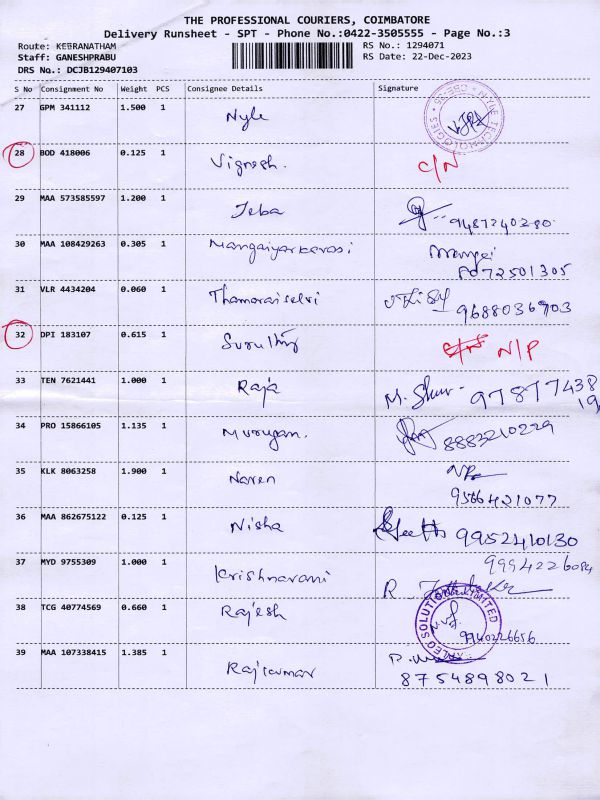 THE PROFESSIONAL COURIERS, COIMBATORE
Delivery Runsheet - SPT - Phone No.:0422-3505555 - Page No.:3
Route: KEERANATHAM RS No.: 1294071
Staff: GANESHPRABU RS Date: 22-Dec-2023
DRS No.: DCJB129407103
S No Consignment No Weight PCS Consignee Details Signature
27 GPM 341112 1.500 1 Nyle NYLE TECHNOLOGIES
28 BOD 418006 0.125 1 Vignesh. C/N
29 MAA 573585597 1.200 1 Jeba 9487240280
30 MAA 108429263 0.305 1 Mangaiyarkarasi Mangai
8072501305
31 VLR 4434204 0.060 1 Thamaraiselvi 9688036903
32 DPI 183107 0.615 1 N/P
33 TEN 7621441 1.000 1 Raja M. 97877438
19
34 PRO 15866105 1.135 1 Murugan. 8883210229
35 KLK 8063258 1.900 1 Naren
9566421077
36 MAA 862675122 0.125 1 Nisha 9952410130
37 MYD 9755309 1.000 1 Krishnaveni 9994226084
R.
38 TCG 40774569 0.660 1 Rajesh SOLUTIONS LIMITED
9940226656
39 MAA 107338415 1.385 1 Rajkumar
8754898021